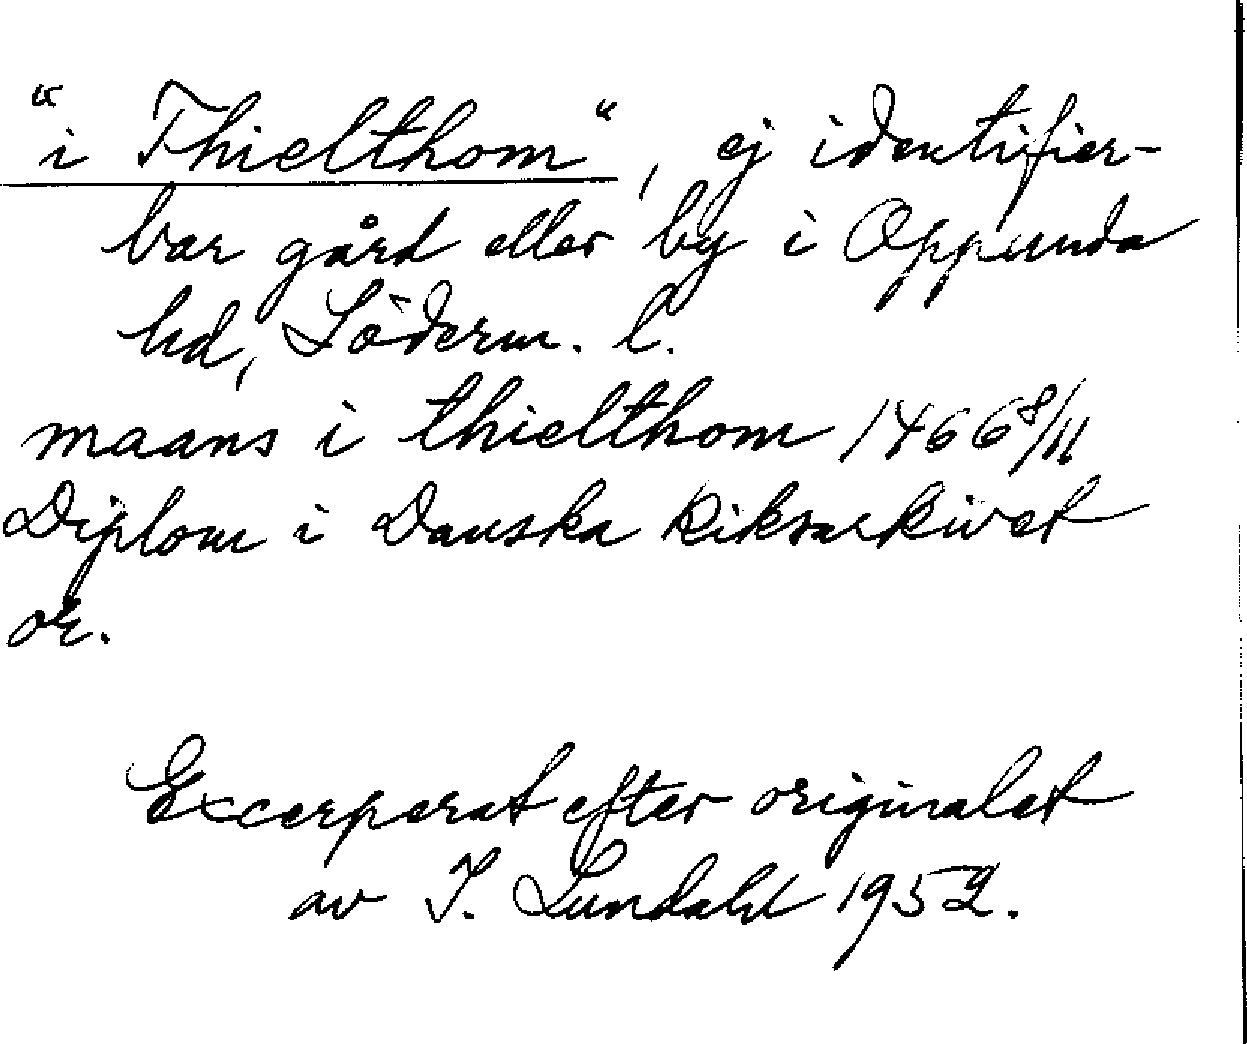 "i Thielthom", ej identifier-
bar gård eller by i Oppunda
hd, Söderm. l.
maans i thielthom 1466 8/11
Diplom i Danska Riksarkivet
or.
Excerperat efter originalet
av I. Lundahl 1952.